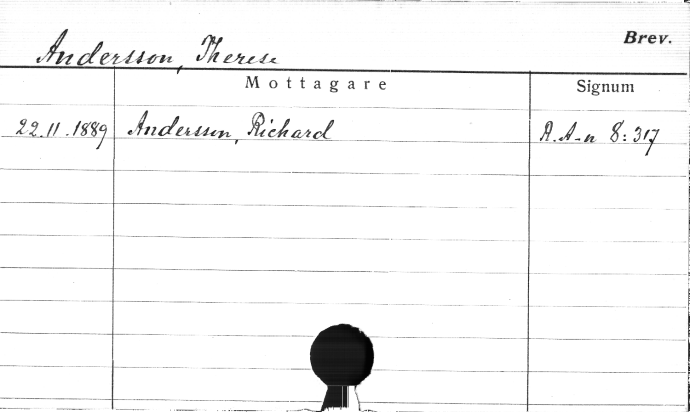 Brev.
Andersson, Therese
Mottagare Signum
22.11.1889 Andersson, Richard R.A-n 8:317